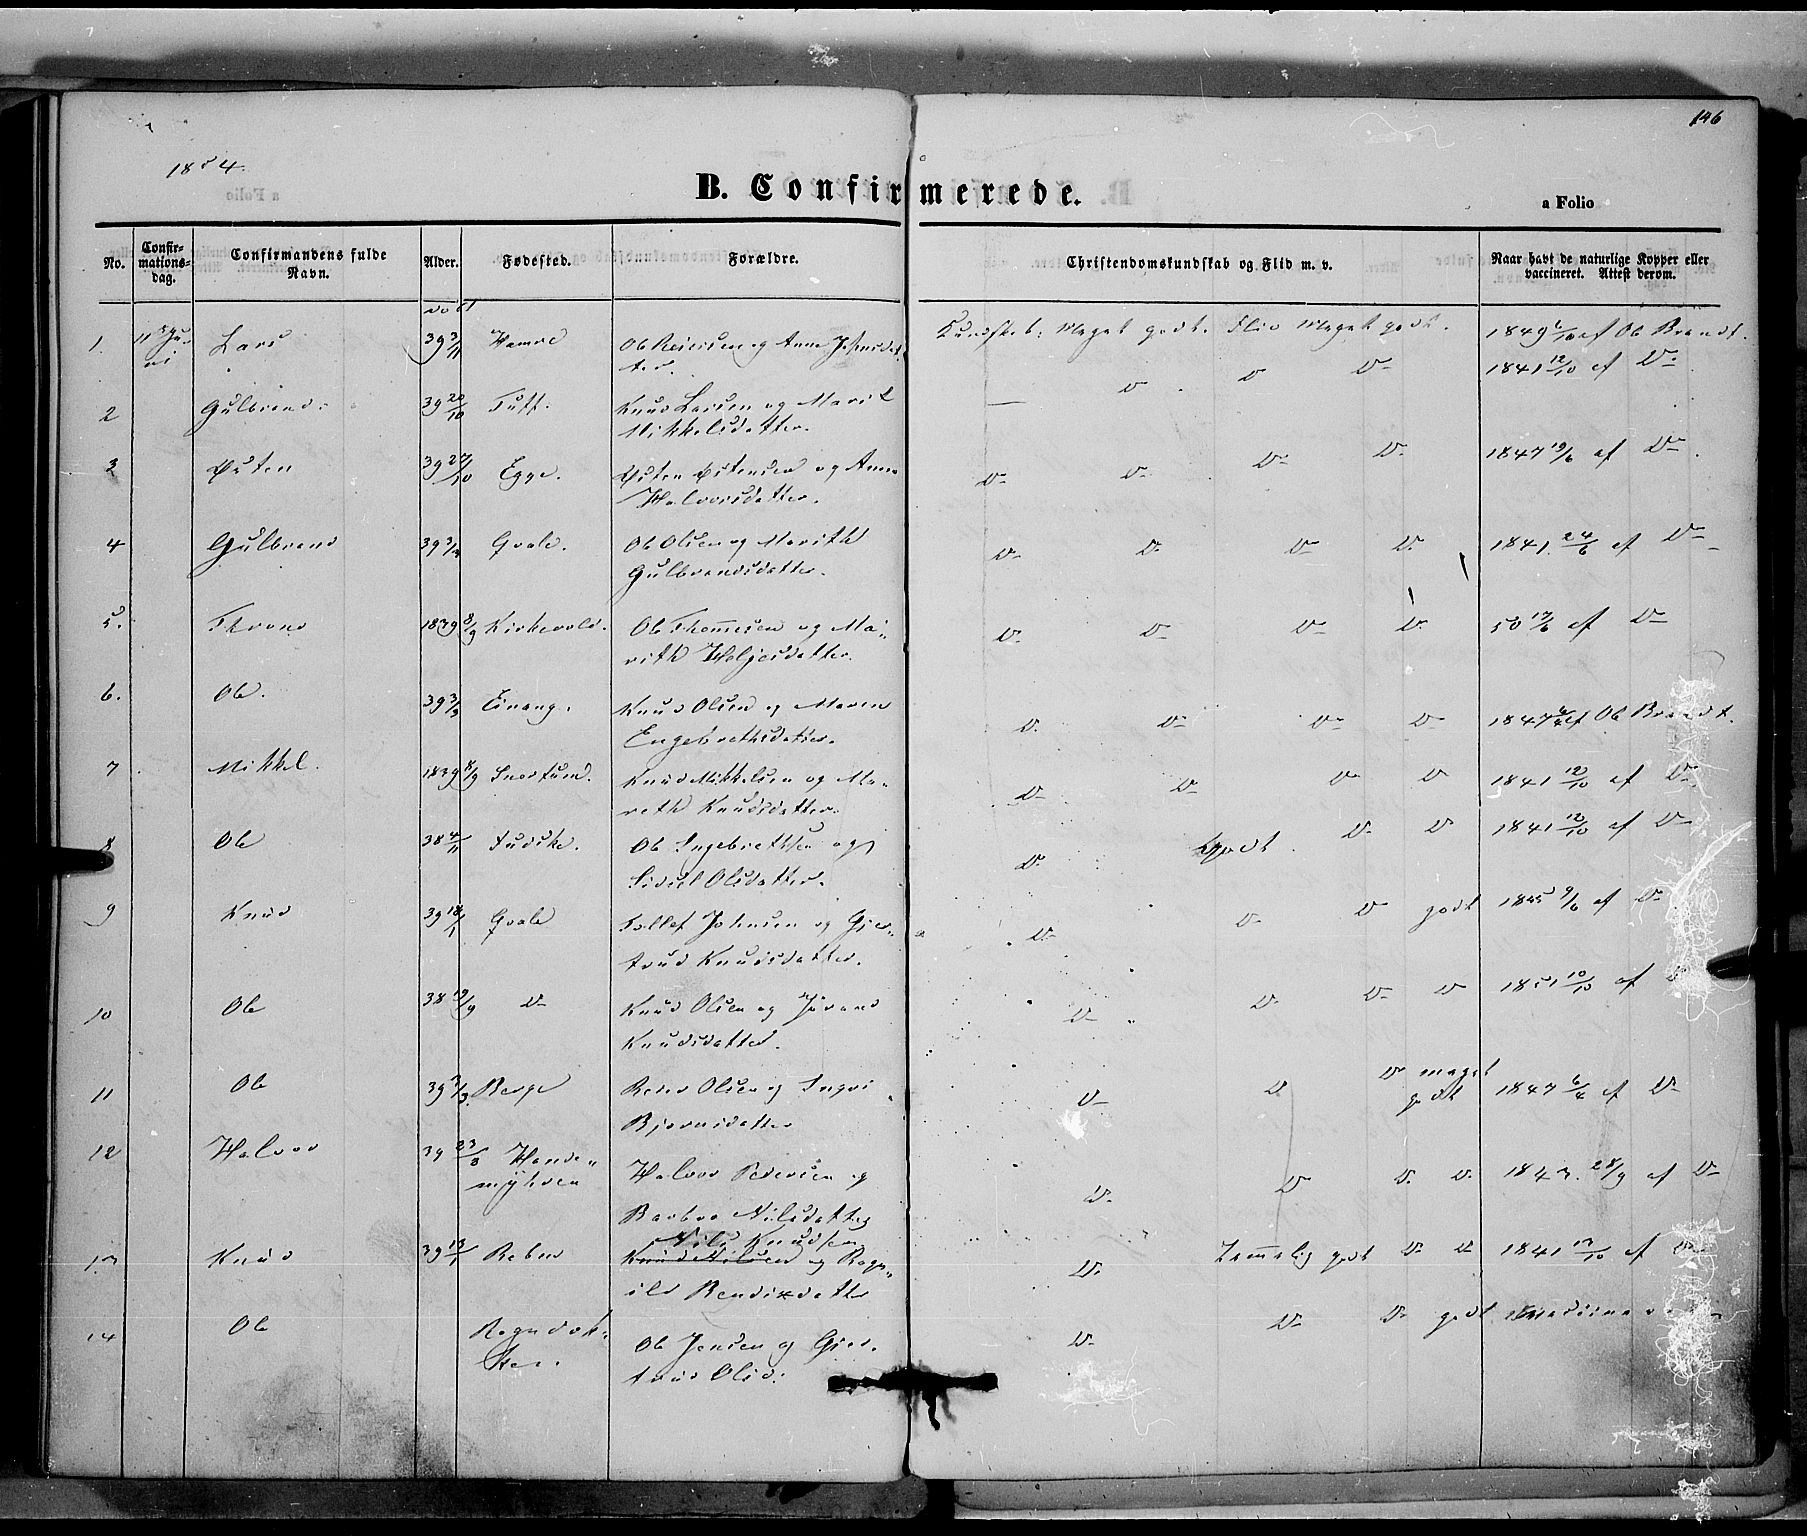 146
1854.
B. Confirmerede.
a Folio
No.
Confirmationsdag.
Confirmandens fulde Navn.
Alder.
Fødested.
Forældre.
Christendomskundskab og Flid m. v.
Naar havt de naturlige Kopper eller vaccineret. Attest derom.
1. Lars 39 3/11 Hamre
Kundskab: Meget godt. Flid Meget godt. 1849 af Ob Brandt.
2 Gulbrand. 39 20/10 Tuff. Knud Larsen og Marit
Mikkelsdatter. D D D 1841 12/10 af D
3 Østen 39 27/10 Egge. Østen Østensen og Anne
Halvorsdatter. D D D D 1847 19/6 af D
4 Gulbrand 39 Qvale. Ob Olsen og Marith
Gulbrandsdatter. D D D D 1841 24/6 af D
5. Thrond 1839 8/9 Kirkevold. Ob Thomesen og Ma-
rith Heljesdatter. D D D D 50 17/6 af D
6. Ob. 39 3/3 Einang. Knud Olsen og Maren
Engebrethsdatter. D D D D 1847 af Ob Brandt.
7 Mikkel. 1839 8/9 Snortund. Knud Mikkelsen og Ma-
reth Knudsdatter. D D D D 1841 12/10 af D
8 Ob 38 4/11 Ob Ingebrethsen og
Sidsel Olsdatter. D Godt D D 1841 12/10 af D
9 Knud 39 18/1 Qvale Tollef Johnsen og Gjer-
trud Knudsdatter. D D D godt 1845 9/6 af D
10 Ob 38 19/9 D Knud Olsen og Jørand
Knudsdatter. D D D D 1851 10/10 af D
11 Ob 39 3/3 Berge Olsen og Ingri
Bjørnsdatter D D D meget
godt 1847 6/4 af D
12 Halvor 39 23/8 Hande-
myhren Halvor Pedersen og
Barbro Nilsdatter D D D D 1843. 28/9 af D
Nils Knudsen
13 Knud 39 13/1 Rebne Knud Nilsen og Ragn-
ild Bendixdatter D Temmelig godt D D 1841 12/10 af D
14 Ob Rogndok-
ken. Ob Jensen og Gjer-
trud Olsd: D D D godt